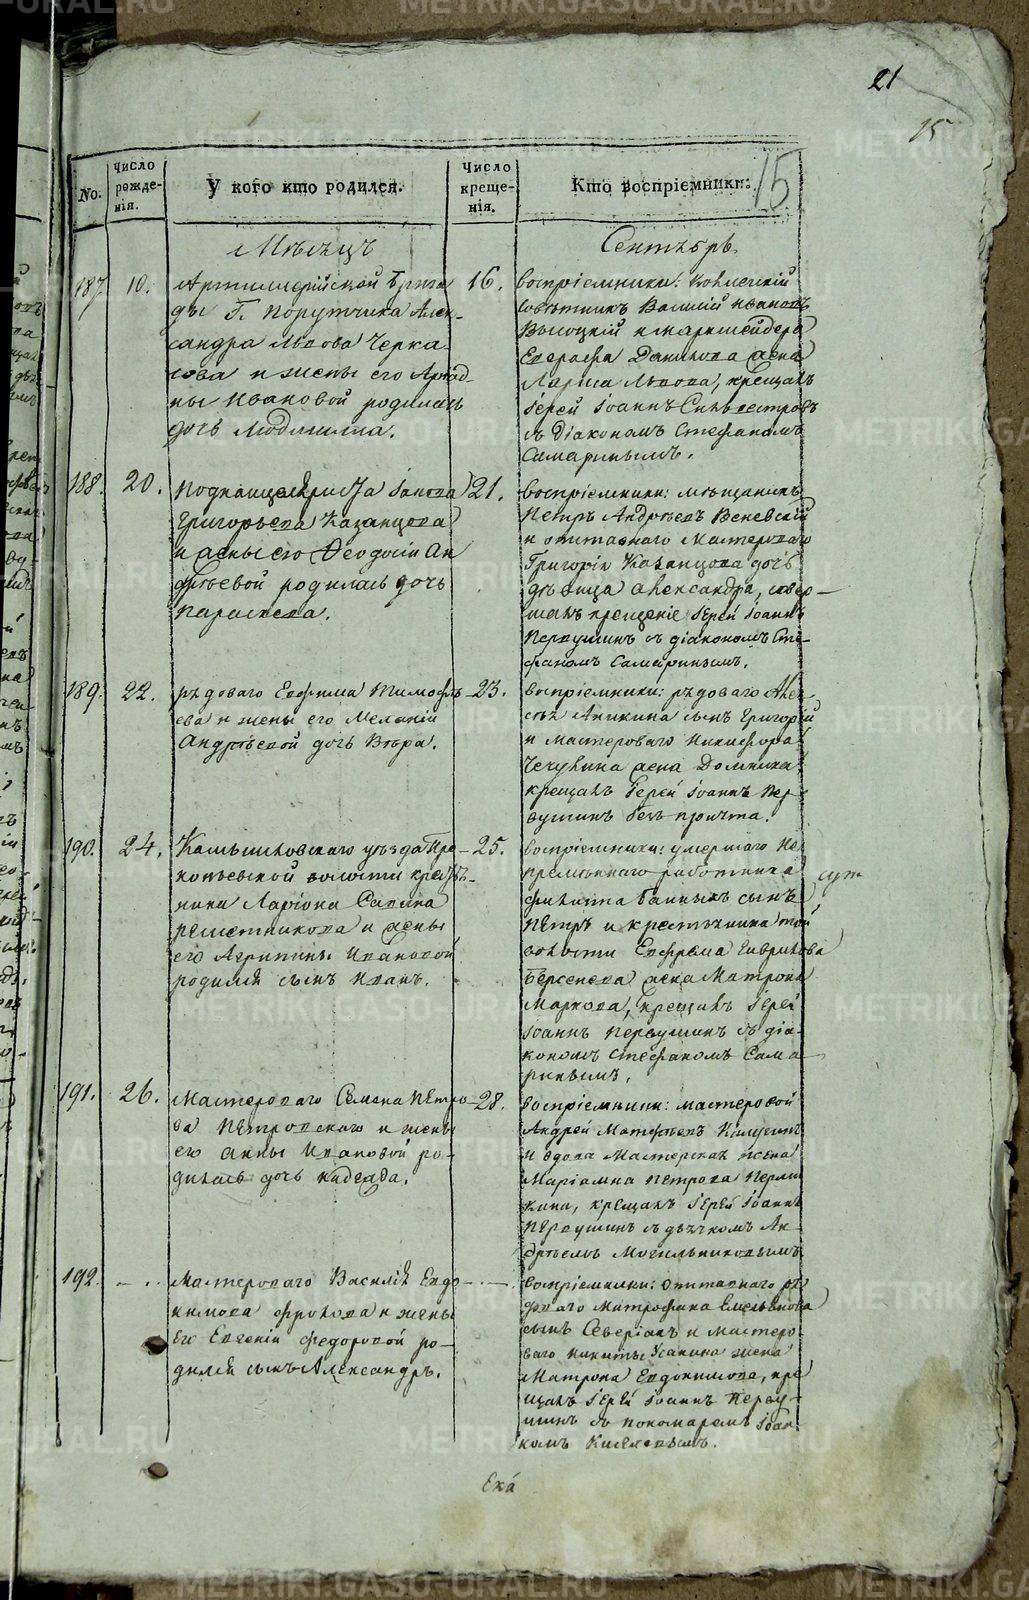 21
15
15
No.
Число рожде-нія.
У кого кто родился.
Число креще-нія.
Кто воспріемники:
Мѣсяцъ
Сентябрь
187. 10.
Артиллерійской Брига
ды Г. Порутчика Алек-
сандра Львова Черка
сова и жены его Ариад-
ны Ивановой родилась
дочь Людмилла.
16.
воспріемники: Коллежскій
совѣтникъ Василій Ивановъ
Высоцкій и маркшейдера
Евграфа Данилова жена
Лариса Львова, крещалъ
Іерей Іоаннъ Сильвестровъ
съ Діакономъ Стефаномъ
Самаринымъ.
188. 20.
Іакова
Григорьева Казанцова
и жены его Ѳеодосіи Ан
дрѣевой родилась дочь
Параскева.
21.
воспріемники: мѣщанинъ
Петръ Андрѣевъ Веневскій
и отставнаго Мастероваго
Григорія Казанцова дочь
дѣвица Александра, совер-
шалъ крещеніе Іерей Іоаннъ
Первушинъ съ діакономъ Сте-
фаномъ Самаринымъ.
189. 22.
рядоваго Евфима Тимофѣ-
ева и жены его Меланіи
Андрѣевой дочь Вѣра.
23.
воспріемники: рядоваго Алек-
сѣя Аникина сынъ Григорій
и мастероваго Никифора
Чечулина жена Домника
крещалъ Іерей Іоаннъ Пер-
вушинъ безъ причта.
190. 24.
Камышловскаго уѣзда Про-
копьевской волости кресть-
нина Ларіона Савина
Решетникова и жены
его Агрипины Ивановой
родился сынъ Иванъ.
25.
воспріемники: умершаго Не
премѣннаго работника
Филиппа сынъ
Петръ и крестьянина той
волости Ефрема Гаврилова
Берсенева жена Матрона
Маркова, крещалъ Іерей
Іоаннъ Первушинъ съ діа-
кономъ Стефаномъ Сама-
ринымъ.
191. 26.
Мастероваго Семена Петро-
ва Петровскаго и жены
его Анны Ивановой ро-
дилась дочь Надежда.
28.
воспріемники: мастеровой
Андрей Матфѣевъ
и вдова Мастерская жена
Маріамна Петрова
крещалъ Іерей Іоаннъ
Первушинъ съ дьячкомъ Ан-
дрѣемъ Могильниковымъ
192. - ..
Мастероваго Василія Евдо-
кимова Фролова и жены
его Евгеніи Федоровой ро-
дился сынъ Александръ.
- . -
воспріемники: отставнаго ря
доваго Митрофана Емельянова
сынъ Северіанъ и мастеро-
ваго Никиты Исакина жена
Матрона Евдокимова, кре
щалъ Іерей Іоаннъ Перву-
шинъ съ пономаремъ Іоан-
номъ Киселевымъ.
Ека
METRIKI.GASO-URAL.RU